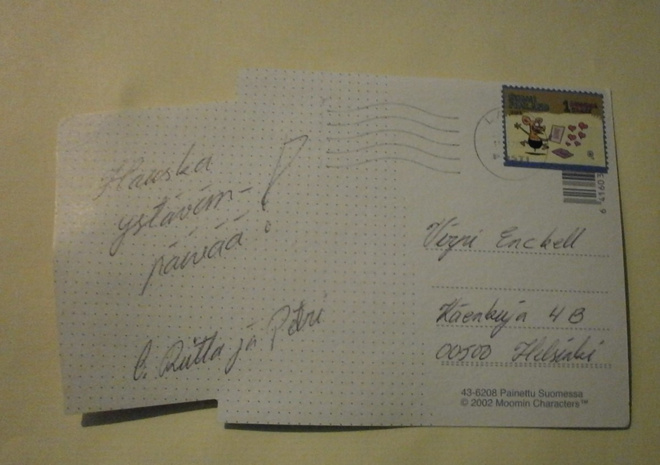 Hauska
ystävän-
päivää!
t. Riitta ja Petri
1
Virpi Enckell
4 B
00500 Helsinki
43-6208 Painettu Suomessa
© 2002 Moomin Characters™